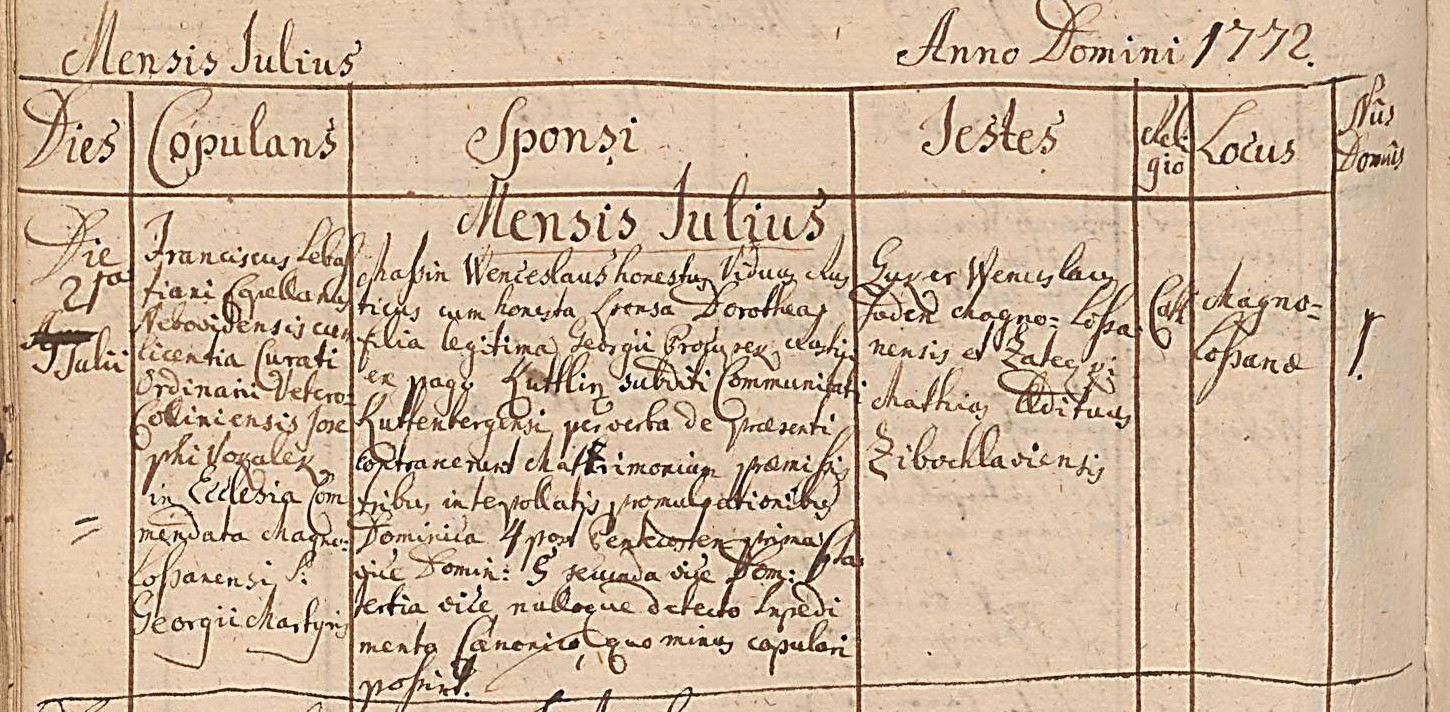 Mensis Julius Anno Domini 1772.
Dies Copulans Sponsi Testes Reli: Locus Nũs
gio Domûs
Mensis Julius
Die
21ma
Julii
Franciscus Sebas
tiani Capellanus
Nebovidensis cum
licentia Curati
Ordinarii Vetero-
Coliniensis Jose
phi
in Ecclesia Com
mendata Magno-
Lossanensi S:
Georgii Martyris
Massin Wenceslaus honestus Viduus Rus
ticus cum honesta Sponsa Dorothea
filia legitima Georgii Rustici
ex pago Kuttlirz subditi Communitati
Kuttenbergensi per verba de praesenti
contraxerunt Mattrimonium praemissis
tribus interpollatis promulgationibus
Dominica 4 post Pentecosten prima
vice Domin: 5 secunda vice Dom: 6ta
tertia vice nulloque detecto Inpedi
mento Canonico, quo minus copulari
possint.
Wenceslaus
Magno- Lossa-
nensis et
Mathias Ædituus
Zibochlaviensis
Cath
Magno-
Lossanæ
1.